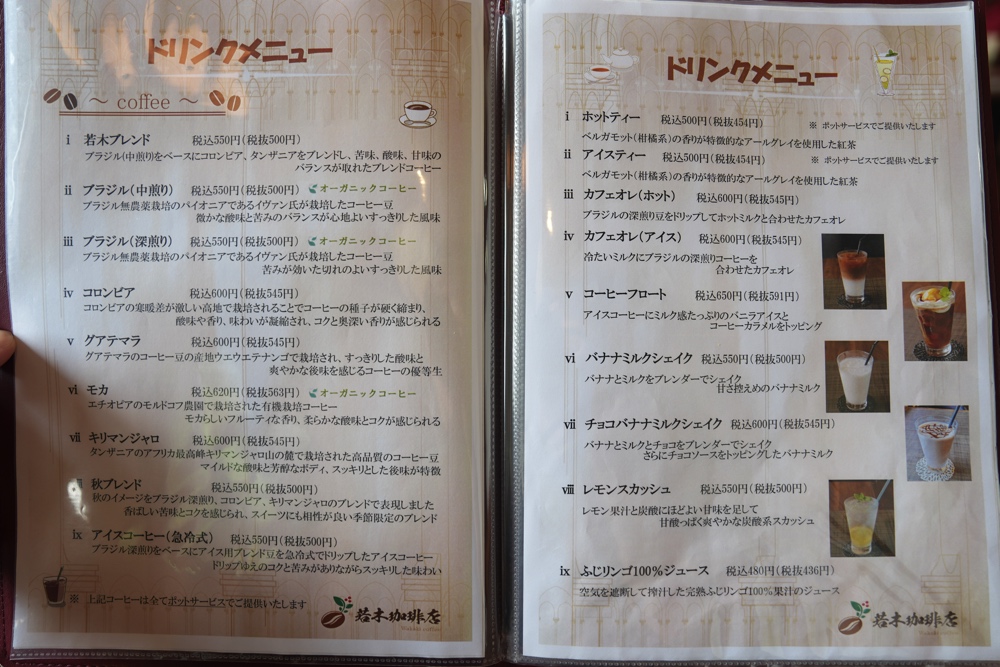 ドリンクメニュー
～ coffee ～
ⅰ 若木ブレンド 税込550円(税抜500円)
ブラジル(中煎り)をベースにコロンビア、タンザニアをブレンドし、苦味、酸味、甘味の
バランスが取れたブレンドコーヒー
ⅱ ブラジル(中煎り) 税込550円(税抜500円) オーガニックコーヒー
ブラジル無農薬栽培のパイオニアであるイヴァン氏が栽培したコーヒー豆
微かな酸味と苦みのバランスが心地よいすっきりした風味
ⅲ ブラジル(深煎り) 税込550円(税抜500円) オーガニックコーヒー
ブラジル無農薬栽培のパイオニアであるイヴァン氏が栽培したコーヒー豆
苦みが効いた切れのよいすっきりした風味
ⅳ コロンビア 税込600円(税抜545円)
コロンビアの寒暖差が激しい高地で栽培されることでコーヒーの種子が硬く締まり、
酸味や香り、味わいが凝縮され、コクと奥深い香りが感じられる
ⅴ グアテマラ 税込600円(税抜545円)
グアテマラのコーヒー豆の産地ウエウエテナンゴで栽培され、すっきりした酸味と
爽やかな後味を感じるコーヒーの優等生
ⅵ モカ 税込620円(税抜563円) オーガニックコーヒー
エチオピアのモルドコフ農園で栽培された有機栽培コーヒー
モカらしいフルーティな香り、柔らかな酸味とコクが感じられる
ⅶ キリマンジャロ 税込600円(税抜545円)
タンザニアのアフリカ最高峰キリマンジャロ山の麓で栽培された高品質のコーヒー豆
マイルドな酸味と芳醇なボディ、スッキリとした後味が特徴
秋ブレンド 税込550円(税抜500円)
秋のイメージをブラジル深煎り、コロンビア、キリマンジャロのブレンドで表現しました
香ばしい苦味とコクを感じられ、スイーツにも相性が良い季節限定のブレンド
ⅸ アイスコーヒー(急冷式) 税込550円(税抜500円)
ブラジル深煎りをベースにアイス用ブレンド豆を急冷式でドリップしたアイスコーヒー
ドリップゆえのコクと苦みがありながらスッキリした味わい
※ 上記コーヒーは全てポットサービスでご提供いたします
若木珈琲店
ドリンクメニュー
ⅰ ホットティー 税込500円(税抜454円) ※ ポットサービスでご提供いたします
ベルガモット(柑橘系)の香りが特徴的なアールグレイを使用した紅茶
ⅱ アイスティー 税込500円(税抜454円) ※ ポットサービスでご提供いたします
ベルガモット(柑橘系)の香りが特徴的なアールグレイを使用した紅茶
ⅲ カフェオレ(ホット) 税込600円(税抜545円)
ブラジルの深煎り豆をドリップしてホットミルクと合わせたカフェオレ
ⅳ カフェオレ(アイス) 税込600円(税抜545円)
冷たいミルクにブラジルの深煎りコーヒーを
合わせたカフェオレ
ⅴ コーヒーフロート 税込650円(税抜591円)
アイスコーヒーにミルク感たっぷりのバニラアイスと
コーヒーカラメルをトッピング
ⅵ バナナミルクシェイク 税込550円(税抜500円)
バナナとミルクをブレンダーでシェイク
甘さ控えめのバナナミルク
ⅶ チョコバナナミルクシェイク 税込600円(税抜545円)
バナナとミルクとチョコをブレンダーでシェイク
さらにチョコソースをトッピングしたバナナミルク
ⅷ レモンスカッシュ 税込550円(税抜500円)
レモン果汁と炭酸にほどよい甘味を足して
甘酸っぱく爽やかな炭酸系スカッシュ
ⅸ ふじリンゴ100%ジュース 税込480円(税抜436円)
空気を遮断して搾汁した完熟ふじリンゴ100%果汁のジュース
若木珈琲店